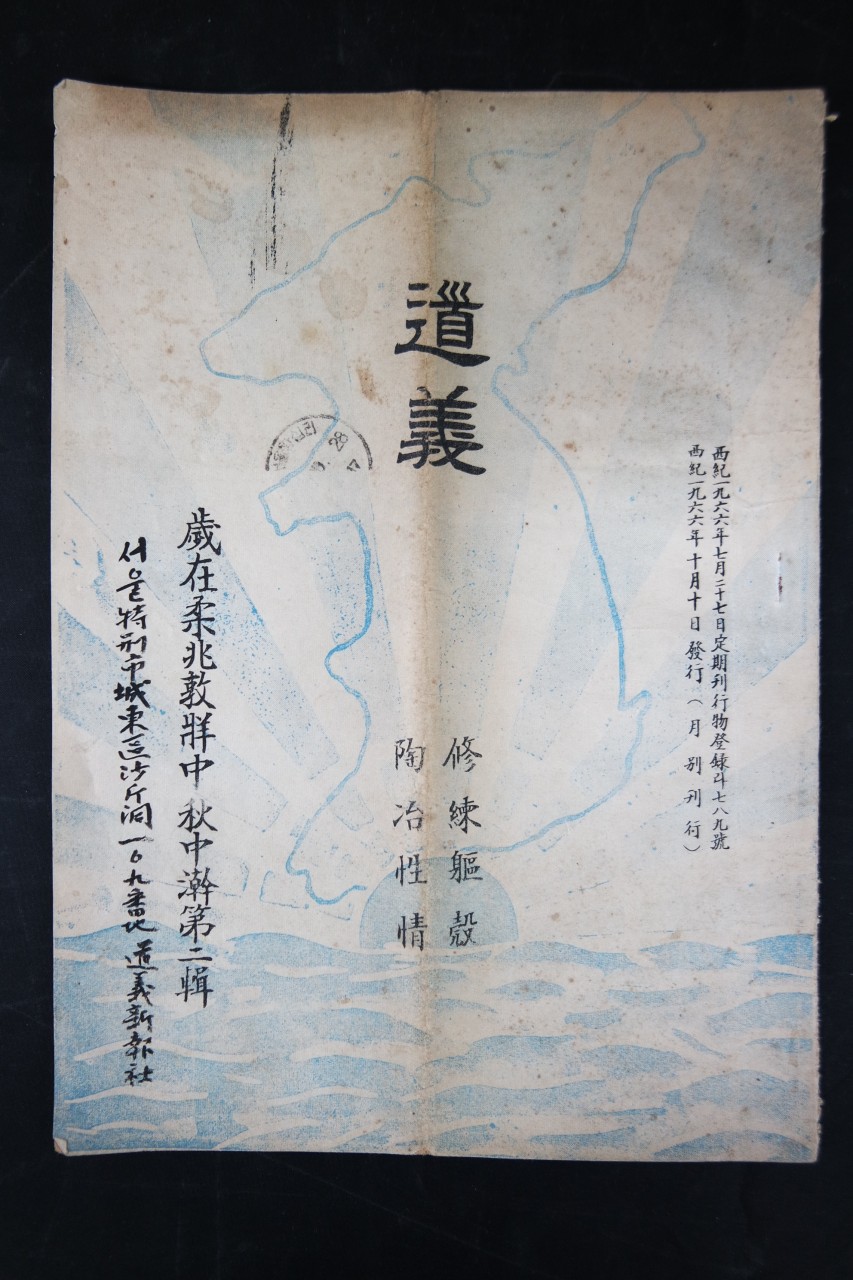 道義
西紀一九六六年七月二十七日定期刊行物登錄斗七八九號
西紀一九六六年十月十日發行(月別刊行)
修練軀殼
陶冶性情
歲在柔兆敦牂中秋中澣第二輯
서울特別市城東區沙斤洞一〇九番地 道義新報社